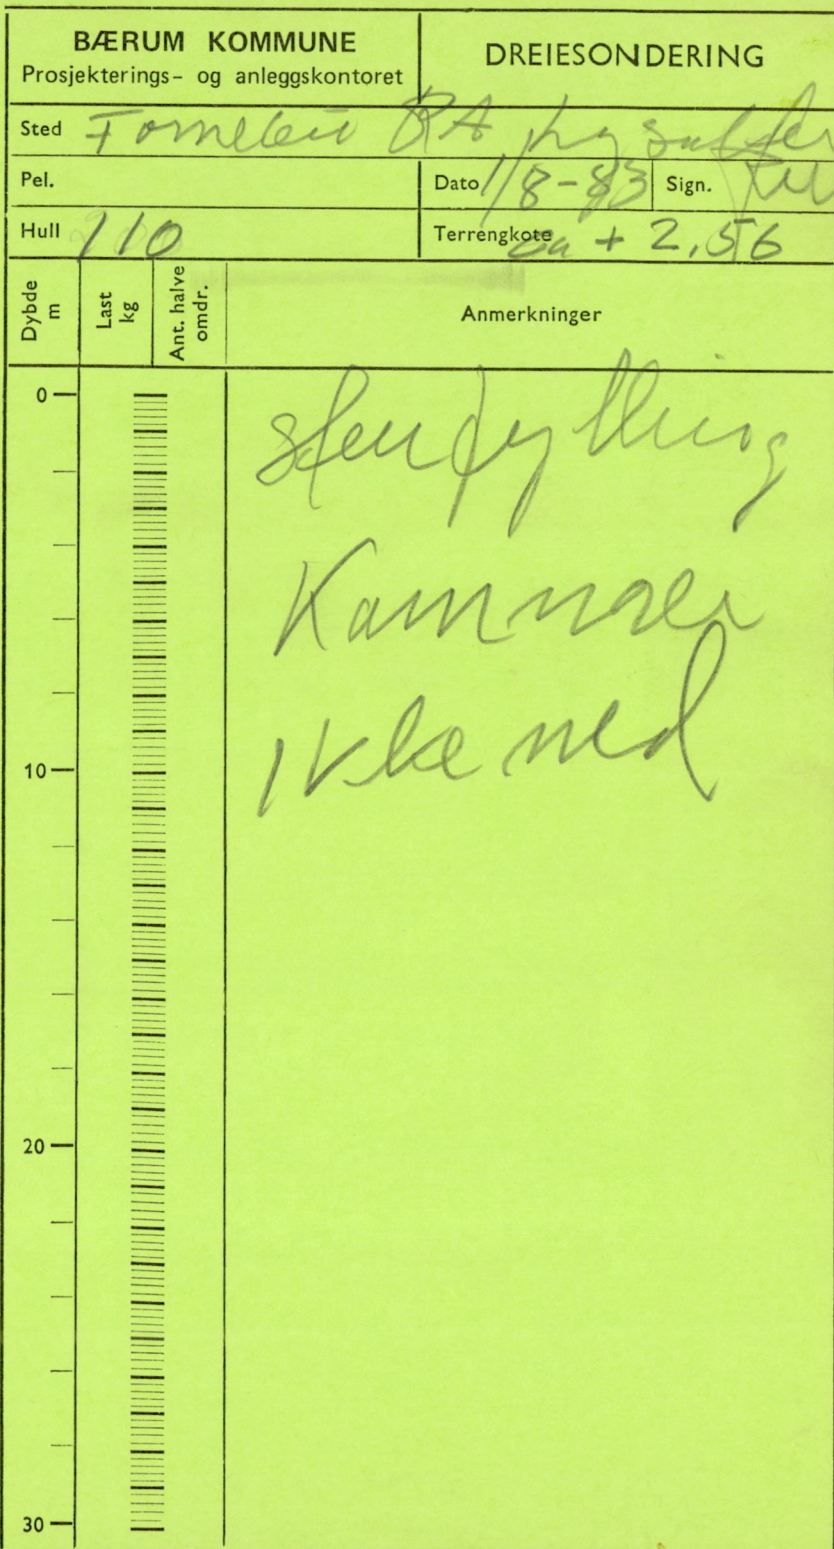 BÆRUM KOMMUNE
Prosjekterings- og anleggskontoret
DREIESONDERING
Sted Fornebu RA
Pel.
Dato 1/8-83 Sign.
Hull 110
Terrengkote ca + 2,56
Dybde m
Last kg
Ant. halve omdr.
Anmerkninger
0
stenfylling
Kommer
ikke ned
10
20
30